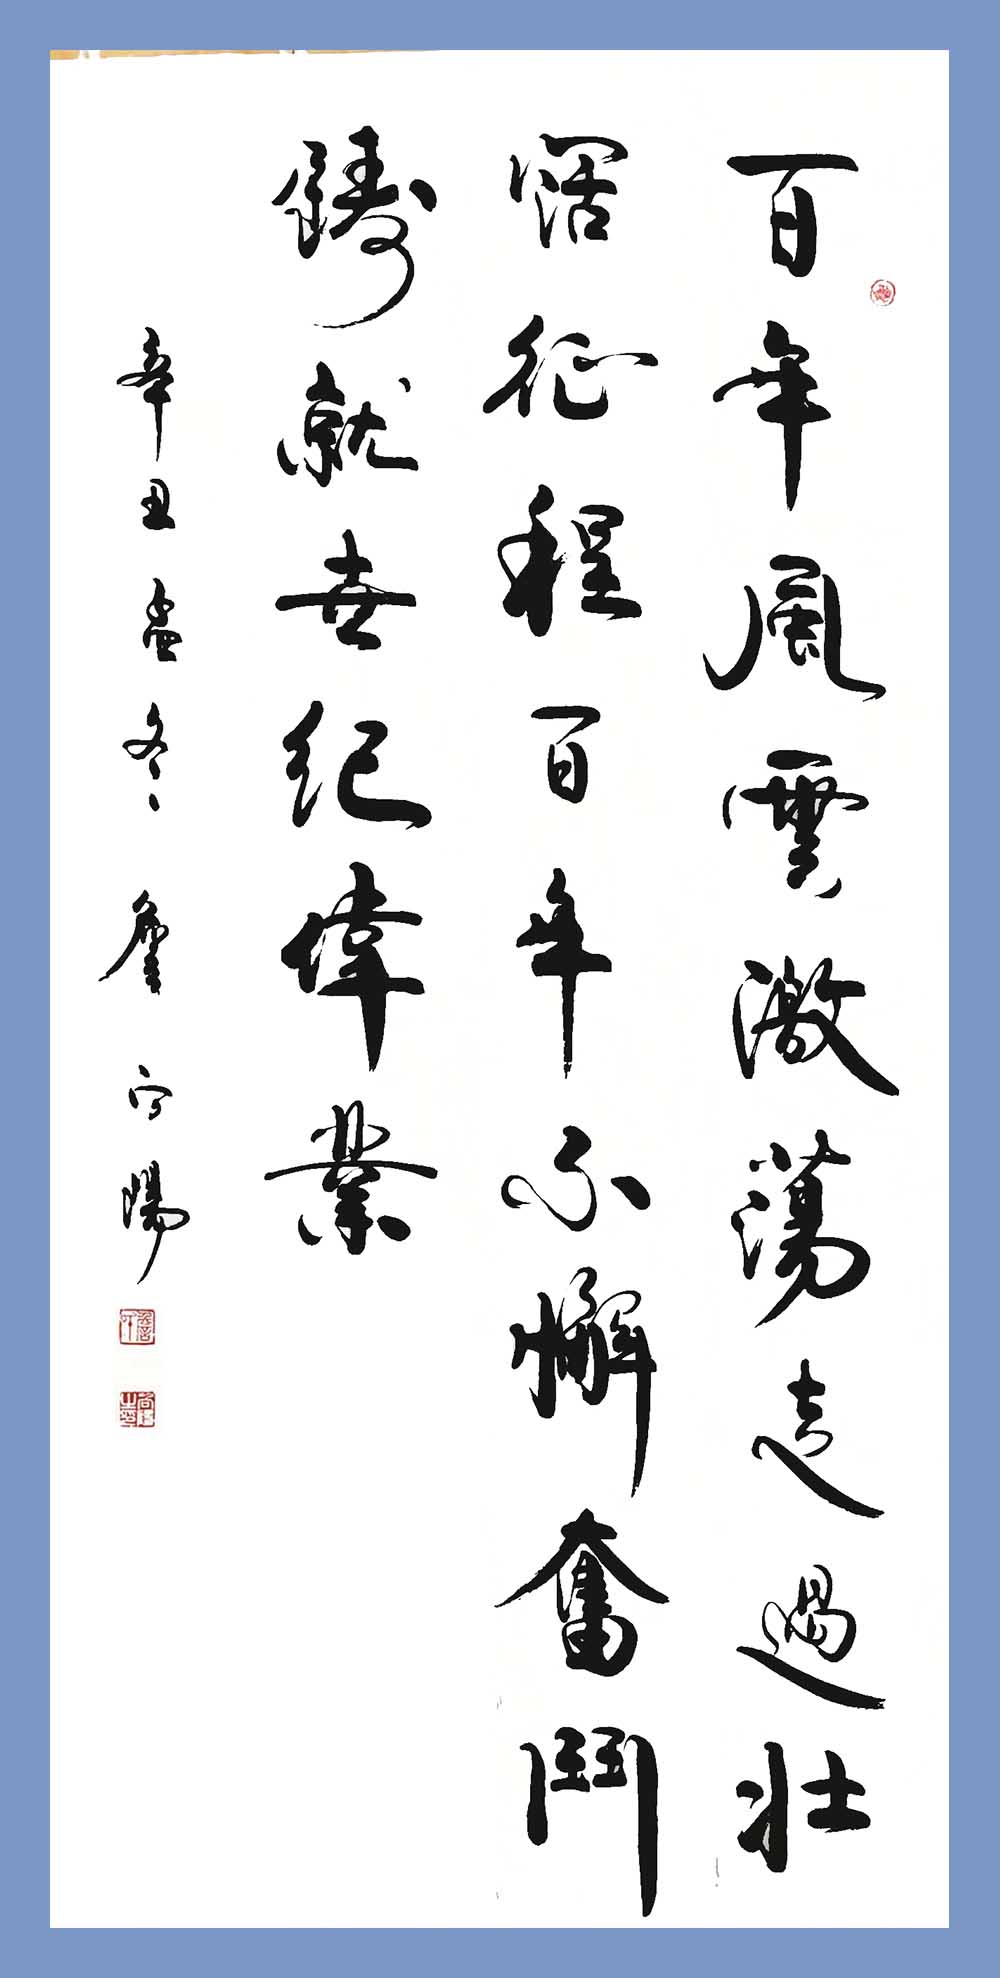 百年風雲激蕩走過壯
闊征程百年不懈奮鬥
鑄就世紀偉業
辛丑孟冬 詹向陽